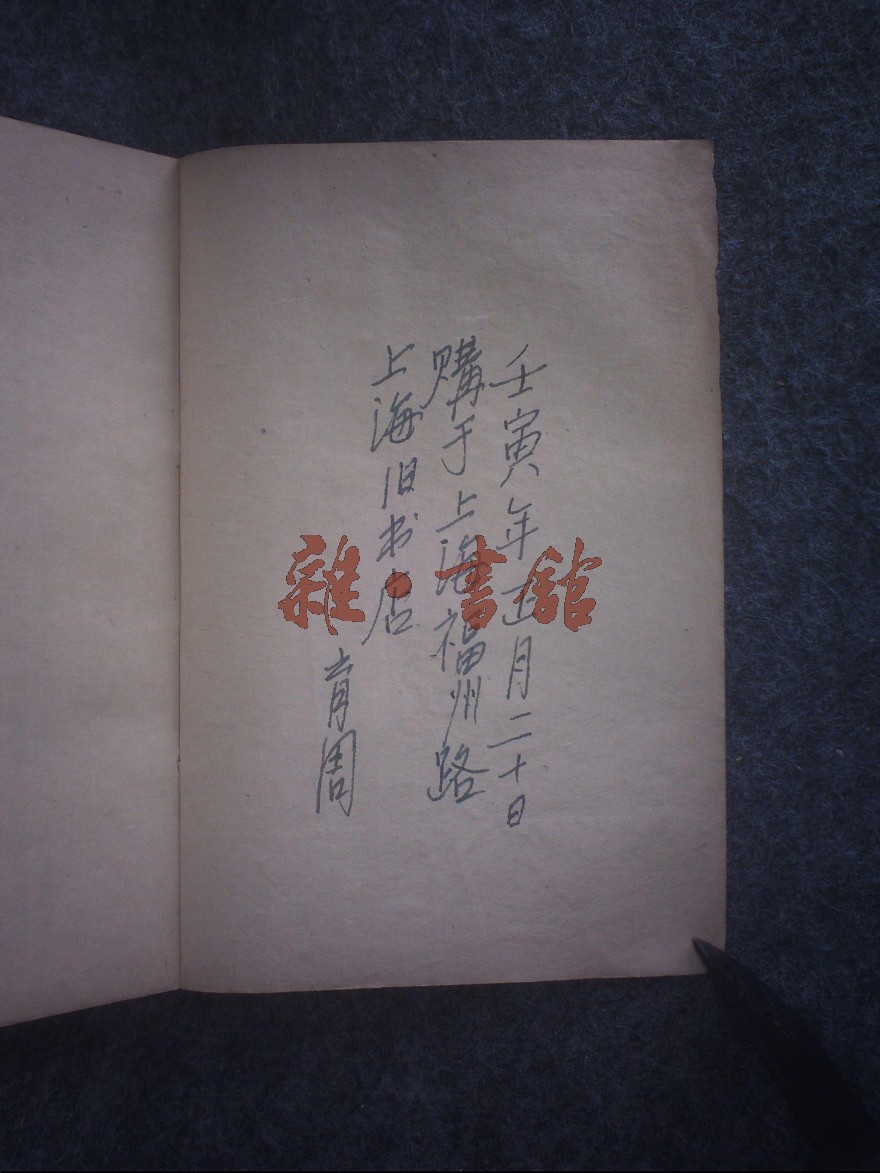 壬寅年正月二十日
購于上海福州路
上海旧书店
育周
雜·書館